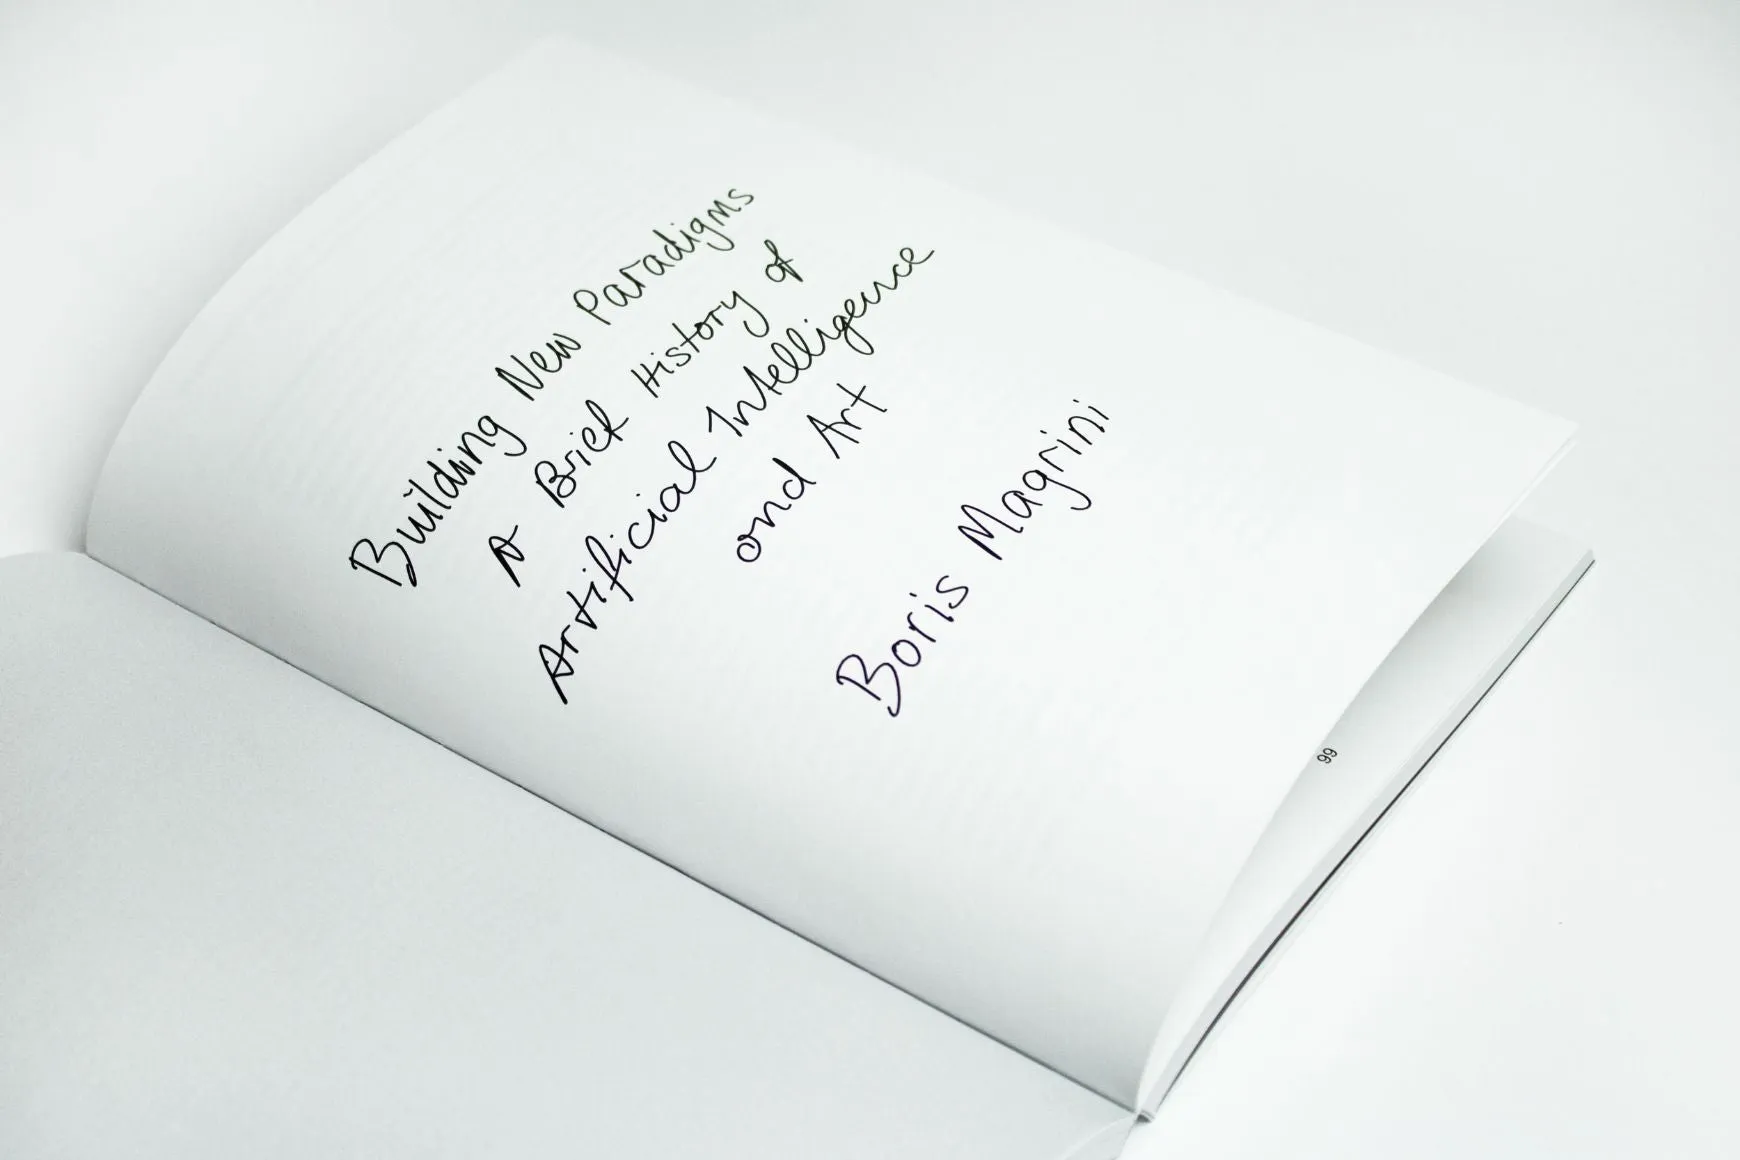 Building New Paradigms
A Brief History of
Artificial Intelligence
and Art
Boris Magrini
99